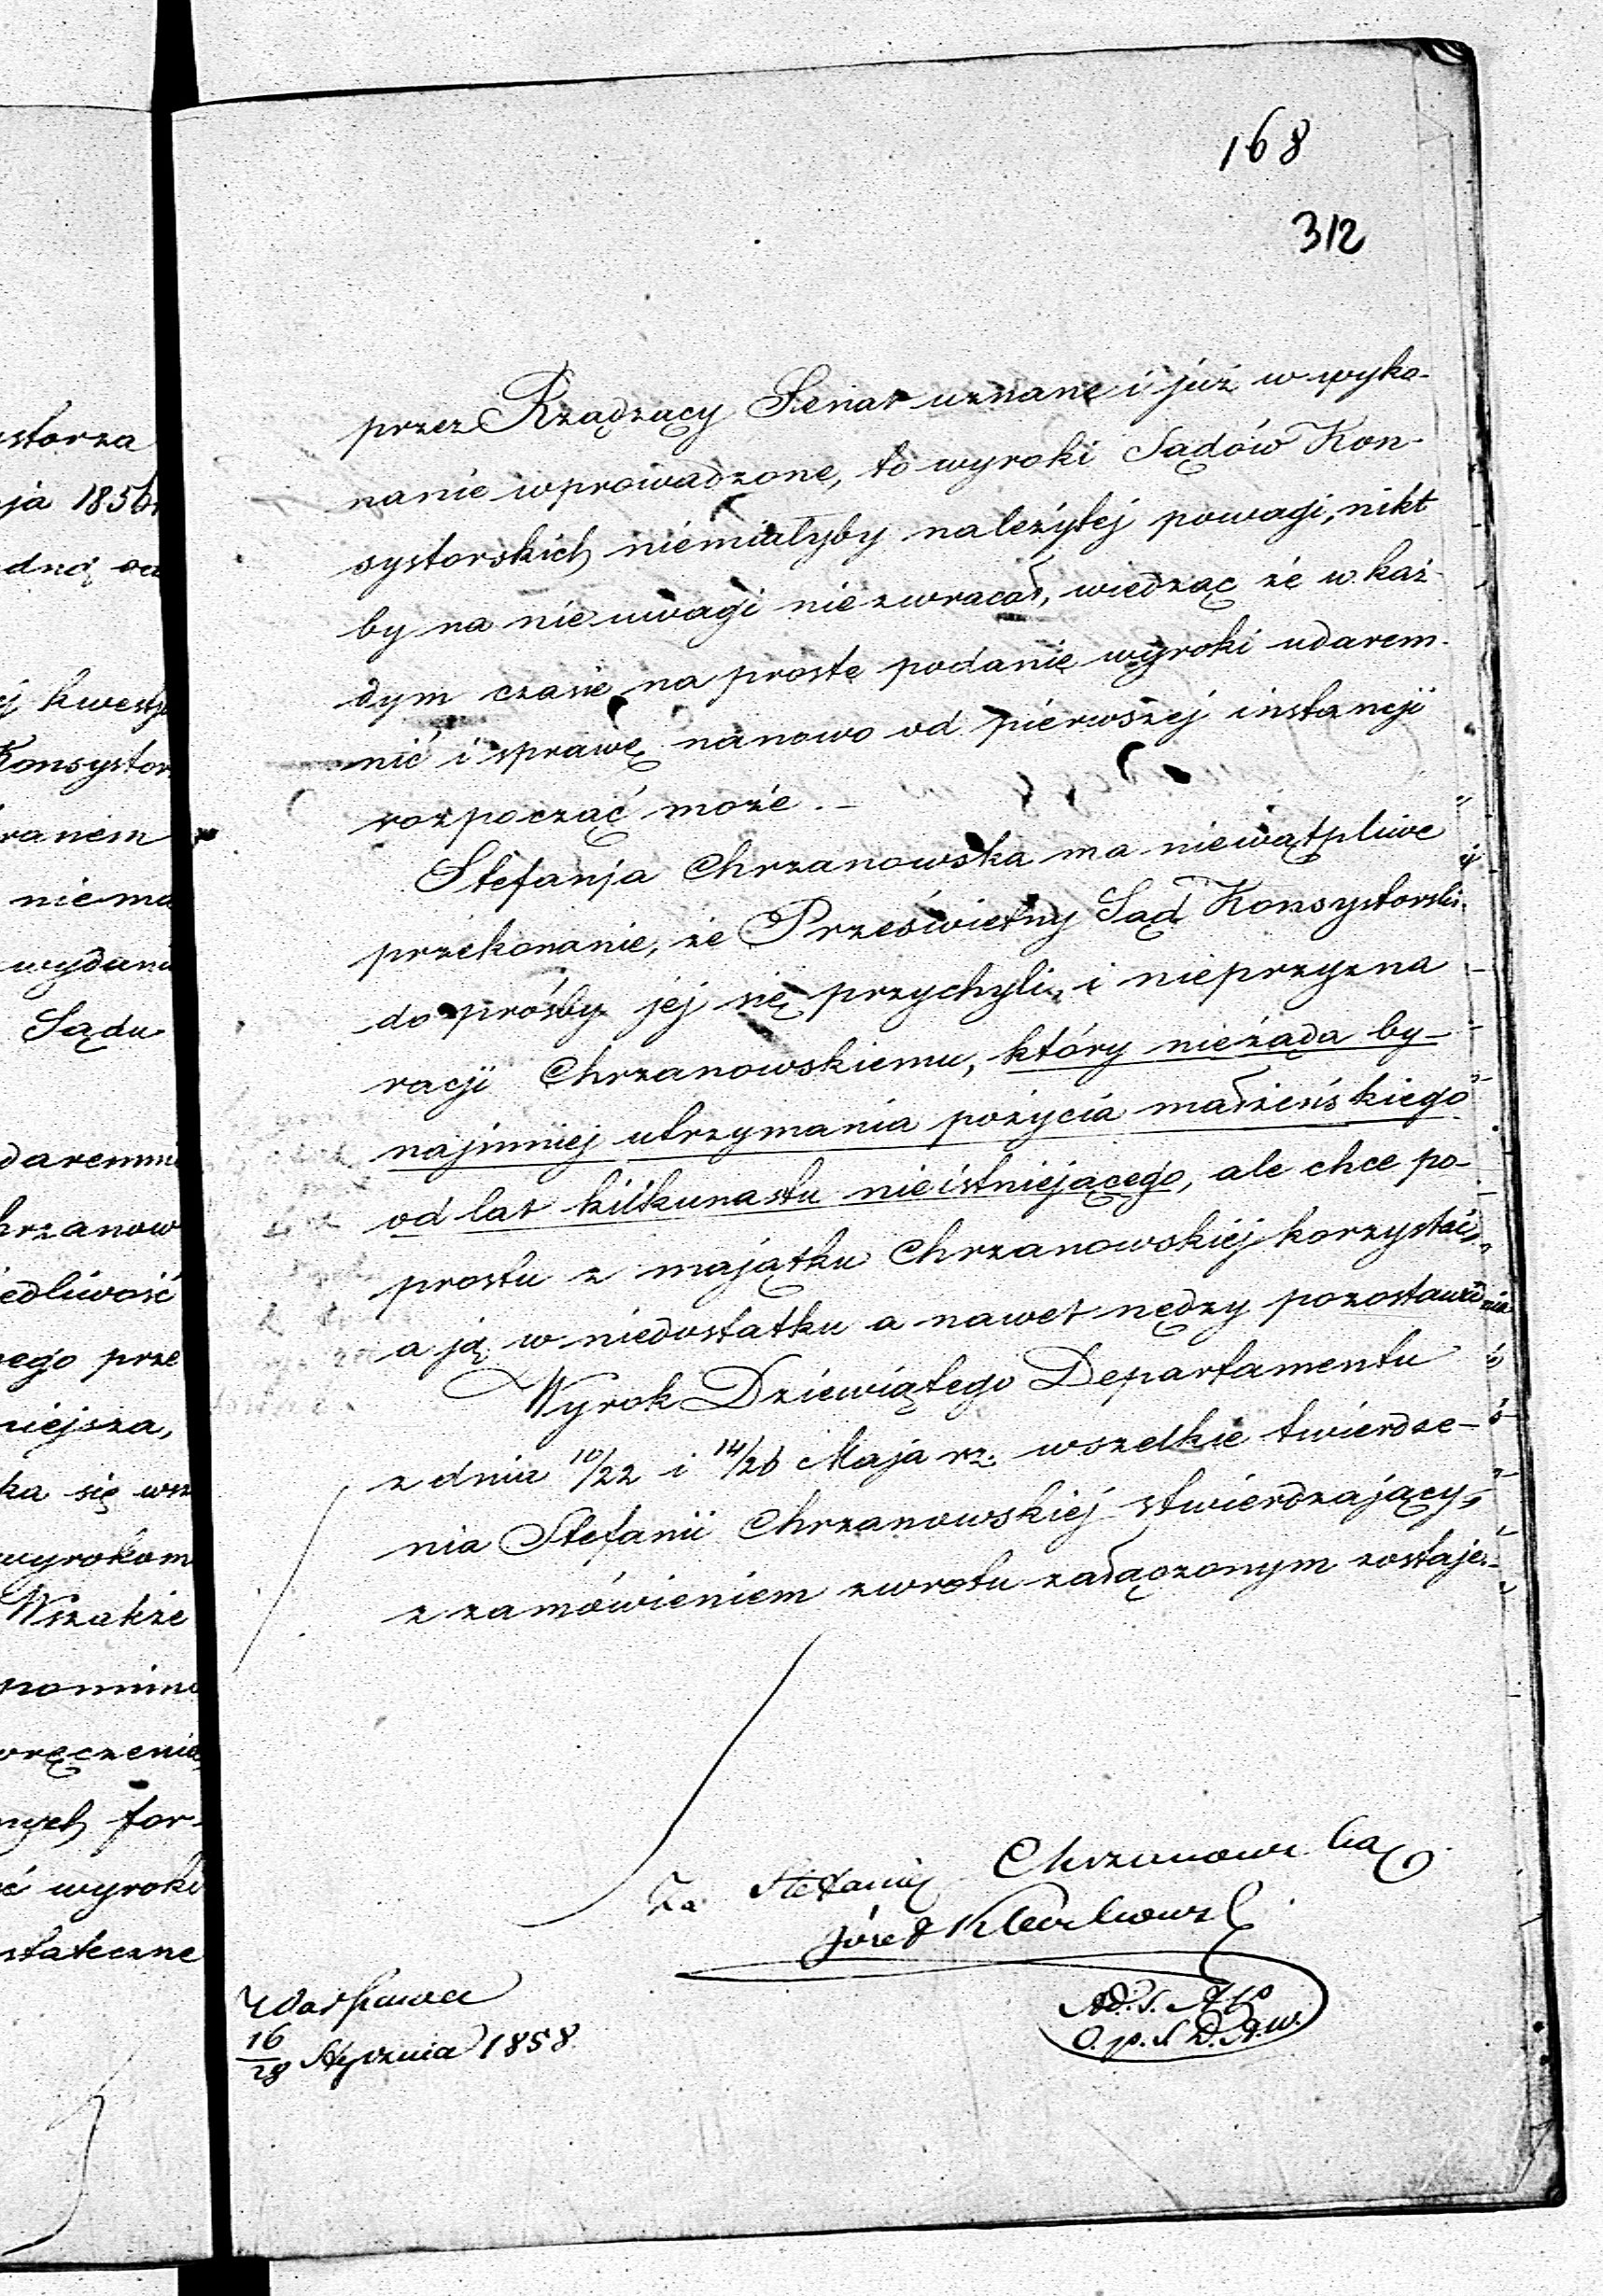 168
312
przez Rządzący Senat uznane i już w wyko-
nanie wprowadzone, to wyroki Sądów Kon-
systorskich niemiałyby należytej powagi, nikt
by na nie uwagi niezwracał, wiedząc że w każ-
dym czasie na proste podanie wyroki udarem-
nić i sprawę nanowo od pierwszej instancji
rozpocząć może. –
Stefanja Chrzanowska ma niewątpliwe
przekonanie, że Prześwietny Sąd Konsystorski
do prośby jej się przychyli, i nieprzyzna
racji Chrzanowskiemu, który nieżąda by-
najmniej utrzymania pożycia małżeńskiego
od lat kilkunastu nieistniejącego, ale chce po-
prostu z majątku Chrzanowskiej korzystać,
a ją w niedostatku a nawet nędzy pozostawia
Wyrok Dziewiątego Departamentu
z dnia 10/22 i 14/26 Maja rz. wszelkie twierdze-
nia Stefanii Chrzanowskiej stwierdzający,
z zamówieniem zwrotu załączonym zostaje.
Za Stefanię Chrzanowską
Józef
Warszawa
16/28 Stycznia 1858
storza
ja 1856
dną od
j kwestji
Konsystor
ranem
niema
wydani
Sądu
daremni
hrzanow
edliwość
ego prze
niejsza,
ka się wsz
wyrokom
Wszakże
pomina
oręczenie
nych for-
ć wyroki
stateczne